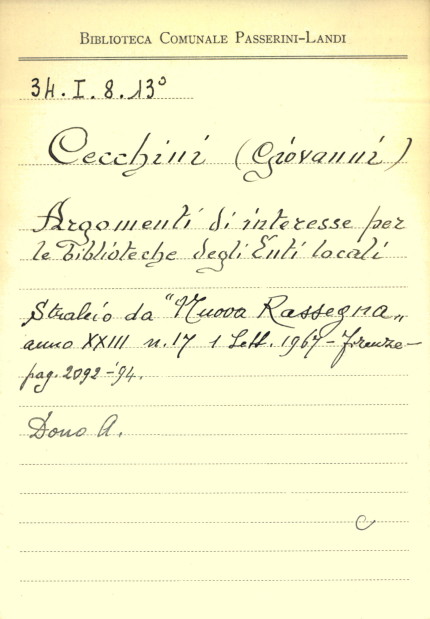 BIBLIOTECA COMUNALE PASSERINI-LANDI
34. I. 8. 13°
Cecchini (Giovanni)
Argomenti di interesse per
le Biblioteche degli Enti locali
Stralcio da "Nuova Rassegna„
anno XXIII n. 17 1 Sett. 1967 - Firenze -
pag. 2092-'94.
Dono A.
C